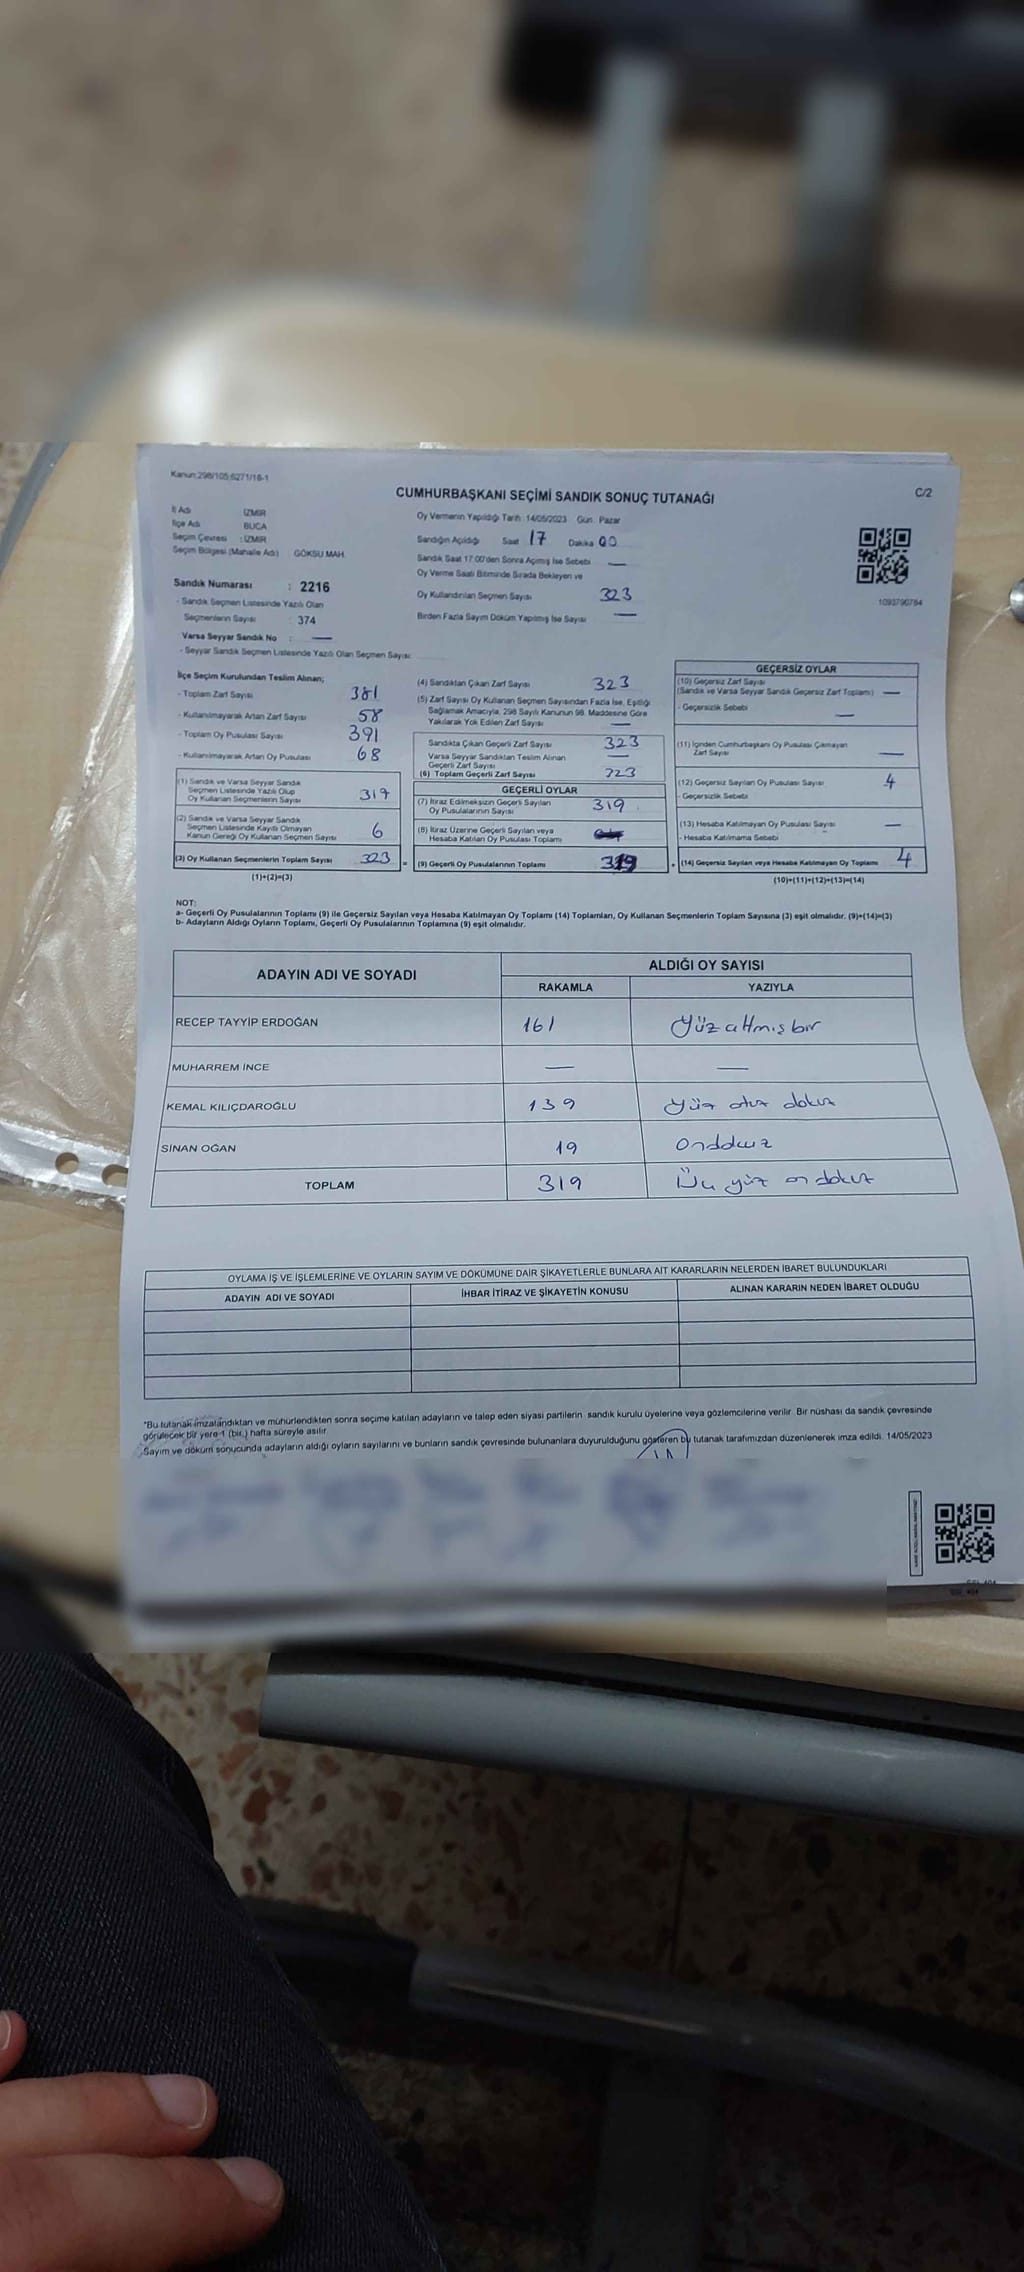 Kanun:298/105;6271/18-1
CUMHURBAŞKANI SEÇİMİ SANDIK SONUÇ TUTANAĞI
C/2
İl Adı İZMİR
İlçe Adı BUCA
Seçim Çevresi : İZMİR
Seçim Bölgesi (Mahalle Adı) GÖKSU MAH.
Sandık Numarası : 2216
- Sandık Seçmen Listesinde Yazılı Olan
Seçmenlerin Sayısı : 374
Varsa Seyyar Sandık No : —
- Seyyar Sandık Seçmen Listesinde Yazılı Olan Seçmen Sayısı:
Oy Vermenin Yapıldığı Tarih :14/05/2023 Gün: Pazar
Sandığın Açıldığı Saat 17 Dakika 00
Sandık Saat 17:00'den Sonra Açımış İse Sebebi —
Oy Verme Saati Bitiminde Sırada Bekleyen ve
Oy Kullandırılan Seçmen Sayısı 323
Birden Fazla Sayım Döküm Yapılmış İse Sayısı —
1093790784
İlçe Seçim Kurulundan Teslim Alınan;
- Toplam Zarf Sayısı 381
- Kullanılmayarak Artan Zarf Sayısı 58
- Toplam Oy Pusulası Sayısı 391
- Kullanılmayarak Artan Oy Pusulası 68
(1) Sandık ve Varsa Seyyar Sandık
Seçmen Listesinde Yazılı Olup
Oy Kullanan Seçmenlerin Sayısı 317
(2) Sandık ve Varsa Seyyar Sandık
Seçmen Listesinde Kayıtlı Olmayan
Kanun Gereği Oy Kullanan Seçmen Sayısı 6
(3) Oy Kullanan Seçmenlerin Toplam Sayısı 323 =
(1)+(2)=(3)
(4) Sandıktan Çıkan Zarf Sayısı 323
(5) Zarf Sayısı Oy Kullanan Seçmen Sayısından Fazla İse, Eşitliği
Sağlamak Amacıyla, 298 Sayılı Kanunun 98. Maddesine Göre
Yakılarak Yok Edilen Zarf Sayısı —
Sandıkta Çıkan Geçerli Zarf Sayısı 323
Varsa Seyyar Sandıktan Teslim Alınan
Geçerli Zarf Sayısı —
(6) Toplam Geçerli Zarf Sayısı 323
GEÇERLİ OYLAR
(7) İtiraz Edilmeksizin Geçerli Sayılan
Oy Pusulalarının Sayısı 319
(8) İtiraz Üzerine Geçerli Sayılan veya
Hesaba Katılan Oy Pusulası Toplamı
(9) Geçerli Oy Pusulalarının Toplamı 319 +
GEÇERSİZ OYLAR
(10) Geçersiz Zarf Sayısı
(Sandık ve Varsa Seyyar Sandık Geçersiz Zarf Toplamı) —
- Geçersizlik Sebebi —
(11) İçinden Cumhurbaşkanı Oy Pusulası Çıkmayan
Zarf Sayısı —
(12) Geçersiz Sayılan Oy Pusulası Sayısı 4
- Geçersizlik Sebebi
(13) Hesaba Katılmayan Oy Pusulası Sayısı —
- Hesaba Katılmama Sebebi
(14) Geçersiz Sayılan veya Hesaba Katılmayan Oy Toplamı 4
(10)+(11)+(12)+(13)=(14)
NOT:
a- Geçerli Oy Pusulalarının Toplamı (9) ile Geçersiz Sayılan veya Hesaba Katılmayan Oy Toplamı (14) Toplamları, Oy Kullanan Seçmenlerin Toplam Sayısına (3) eşit olmalıdır. (9)+(14)=(3)
b- Adayların Aldığı Oyların Toplamı, Geçerli Oy Pusulalarının Toplamına (9) eşit olmalıdır.
ADAYIN ADI VE SOYADI ALDIĞI OY SAYISI
RAKAMLA YAZIYLA
RECEP TAYYİP ERDOĞAN 161 Yüz altmış bir
MUHARREM İNCE — —
KEMAL KILIÇDAROĞLU 139 Yüz otuz dokuz
SİNAN OĞAN 19 Ondokuz
TOPLAM 319 Üç yüz on dokuz
OYLAMA İŞ VE İŞLEMLERİNE VE OYLARIN SAYIM VE DÖKÜMÜNE DAİR ŞİKAYETLERLE BUNLARA AİT KARARLARIN NELERDEN İBARET BULUNDUKLARI
ADAYIN ADI VE SOYADI İHBAR İTİRAZ VE ŞİKAYETİN KONUSU ALINAN KARARIN NEDEN İBARET OLDUĞU
*Bu tutanak imzalandıktan ve mühürlendikten sonra seçime katılan adayların ve talep eden siyasi partilerin sandık kurulu üyelerine veya gözlemcilerine verilir. Bir nüshası da sandık çevresinde
görülecek bir yere 1 (bir ) hafta süreyle asılır.
Sayım ve döküm sonucunda adayların aldığı oyların sayılarını ve bunların sandık çevresinde bulunanlara duyurulduğunu gösteren bu tutanak tarafımızdan düzenlenerek imza edildi. 14/05/2023